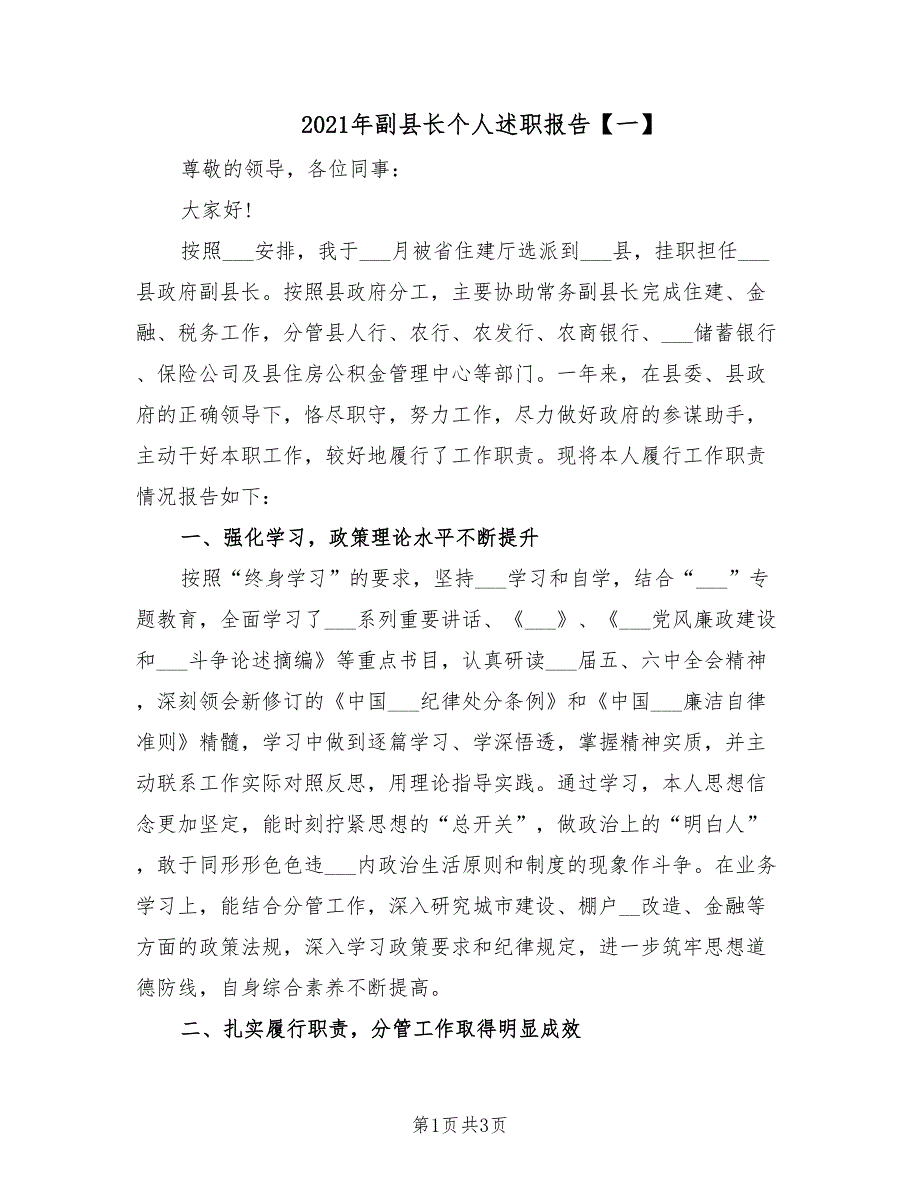 2021年副县长个人述职报告【一】
尊敬的领导，各位同事：
大家好！
按照___安排，我于___月被省住建厅选派到___县，挂职担任___
县政府副县长。按照县政府分工，主要协助常务副县长完成住建、金
融、税务工作，分管县人行、农行、农发行、农商银行、___储蓄银行
、保险公司及县住房公积金管理中心等部门。一年来，在县委、县政
府的正确领导下，恪尽职守，努力工作，尽力做好政府的参谋助手，
主动干好本职工作，较好地履行了工作职责。现将本人履行工作职责
情况报告如下：
一、强化学习，政策理论水平不断提升
按照“终身学习”的要求，坚持___学习和自学，结合“___”专
题教育，全面学习了___系列重要讲话、《___》、《___党风廉政建设
和___斗争论述摘编》等重点书目，认真研读___届五、六中全会精神
，深刻领会新修订的《中国___纪律处分条例》和《中国___廉洁自律
准则》精髓，学习中做到逐篇学习、学深悟透，掌握精神实质，并主
动联系工作实际对照反思，用理论指导实践。通过学习，本人思想信
念更加坚定，能时刻拧紧思想的“总开关”，做政治上的“明白人”
，敢于同形形色色违___内政治生活原则和制度的现象作斗争。在业务
学习上，能结合分管工作，深入研究城市建设、棚户__改造、金融等
方面的政策法规，深入学习政策要求和纪律规定，进一步筑牢思想道
德防线，自身综合素养不断提高。
二、扎实履行职责，分管工作取得明显成效
第1页共3页